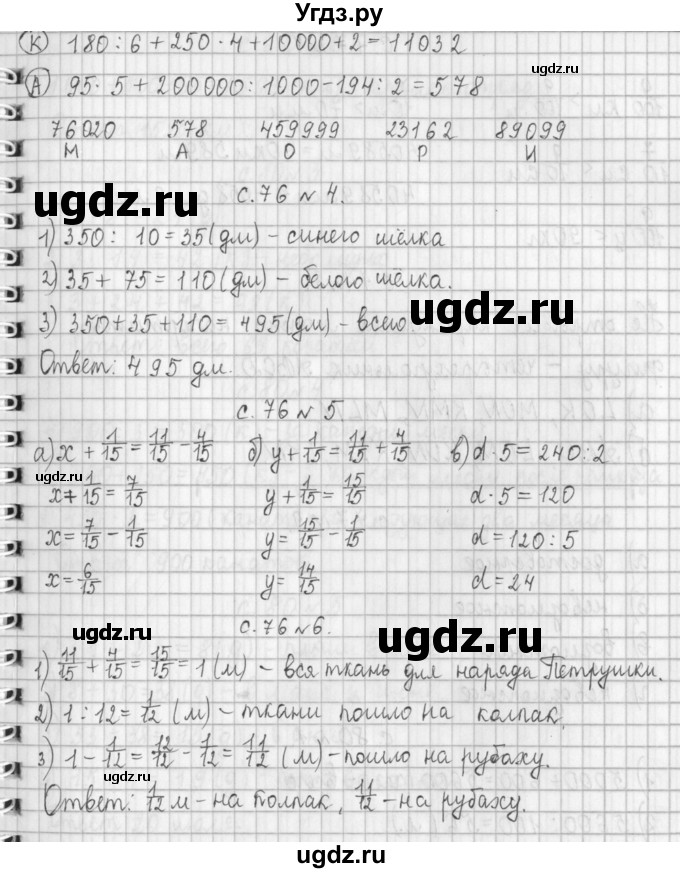 Угдз.ру
К 180 : 6 + 250 · 4 + 10000 + 2 = 11032
ugdz.ru
А 95 · 5 + 200000 : 1000 - 194 : 2 = 578
76020 578 459999 23162 89099
М А О Р И
ugdz.ru
с. 76 № 4.
1) 350 : 10 = 35 (дм) - синего шёлка
2) 35 + 75 = 110 (дм) - белого шёлка.
ugdz.ru
3) 350 + 35 + 110 = 495 (дм) - всего.
Ответ: 495 дм.
ugdz.ru
с. 76 № 5
а) x + 1/15 = 11/15 - 4/15 б) y + 1/15 = 11/15 + 4/15 в) d · 5 = 240 : 2
ugdz.ru
x + 1/15 = 7/15 y + 1/15 = 15/15 d · 5 = 120
x = 7/15 - 1/15 y = 15/15 - 1/15 d = 120 : 5
x = 6/15 y = 14/15 d = 24
ugdz.ru с. 76 № 6. ugdz.ru
1) 11/15 + 4/15 = 15/15 = 1 (м) - вся ткань для наряда Петрушки.
2) 1 : 12 = 1/12 (м) - ткани пошло на колпак.
3) 1 - 1/12 = 12/12 - 1/12 = 11/12 (м) - пошло на рубаху.
Ответ: 1/12 м - на колпак, 11/12 - на рубаху.
ugdz.ru
ugdz.ru